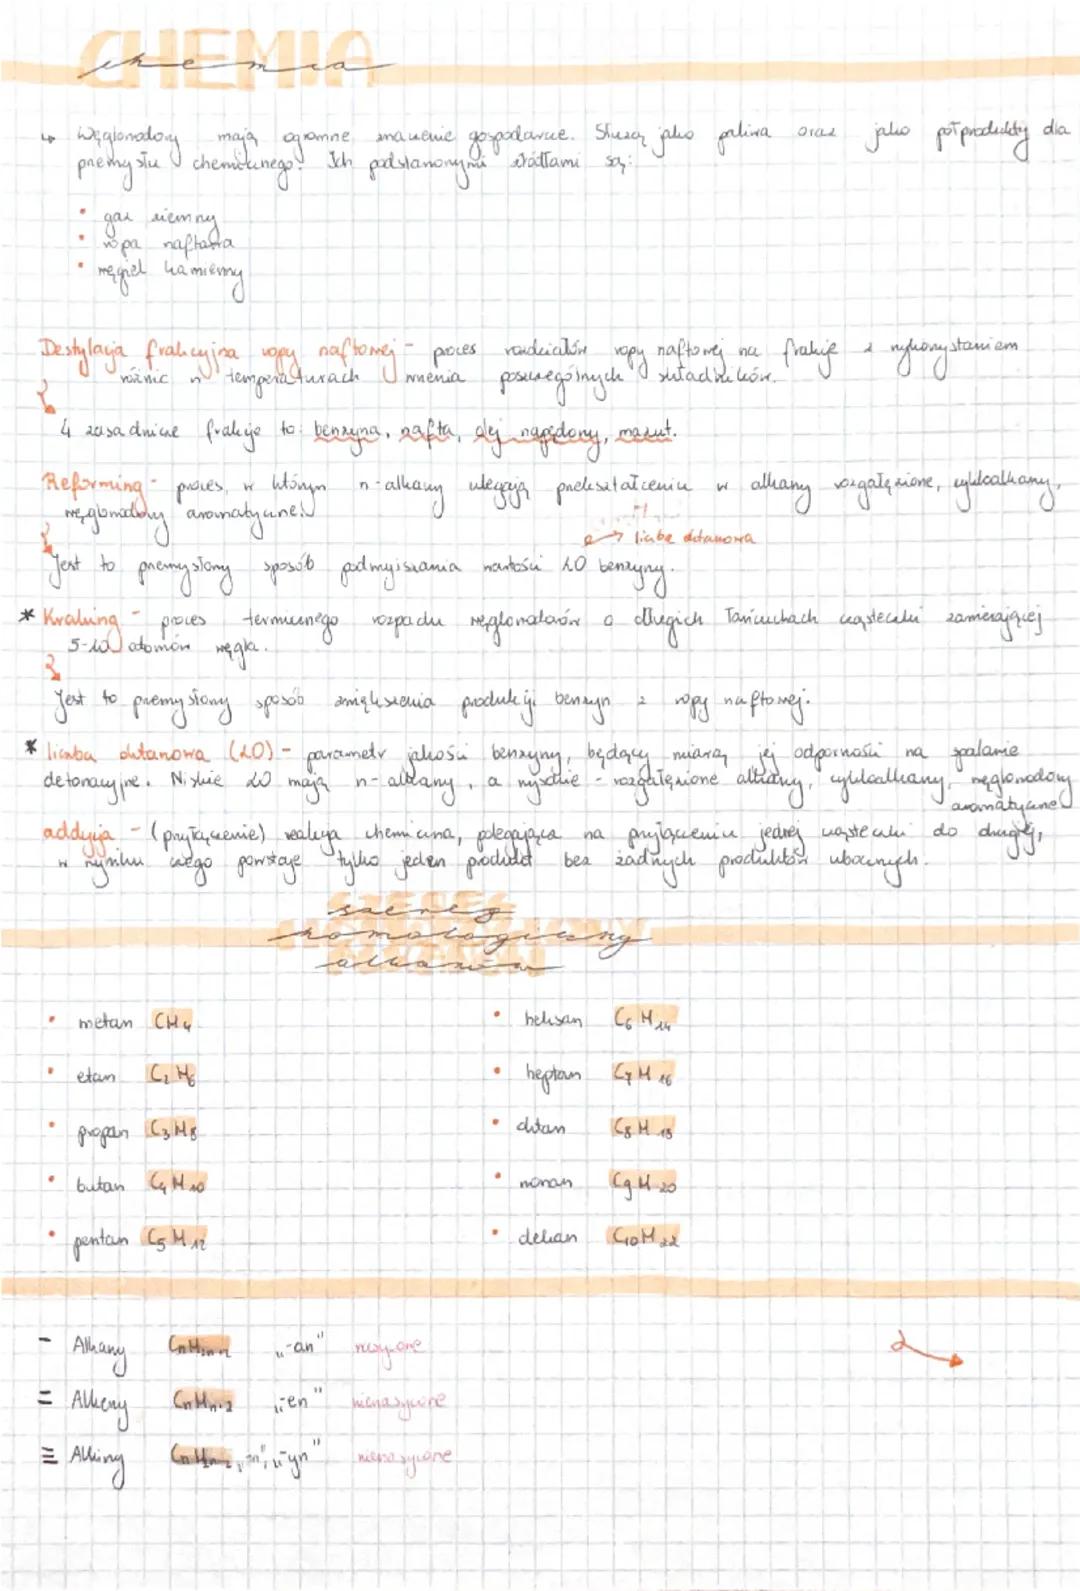 CHEMIA
chemia
↳ Węglowodory mają ogromne znaczenie gospodarcze. Służą jako paliwa oraz jako półprodukty dla
przemysłu chemicznego. Ich podstawowymi źródłami są:
• gaz ziemny
• ropa naftowa
• węgiel kamienny
Destylacja frakcyjna ropy naftowej - proces rozdziałów ropy naftowej na frakcje z wykorzystaniem
różnic w temperaturach wrzenia poszczególnych składników.
4 zasadnicze frakcje to: benzyna, nafta, olej napędowy, mazut.
Reforming - proces, w którym n-alkany ulegają przekształceniu w alkany rozgałęzione, cykloalkany,
węglowodory aromatyczne.
→ liczba oktanowa
Jest to przemysłowy sposób podwyższania wartości LO benzyny.
* Kraking - proces termicznego rozpadu węglowodorów o długich łańcuchach cząsteczki zawierającej
5-10 atomów węgla.
Jest to przemysłowy sposób zwiększenia produkcji benzyn z ropy naftowej.
* liczba oktanowa (LO) - parametr jakości benzyny, będący miarą jej odporności na spalanie
detonacyjne. Niskie LO mają n-alkany, a wysokie - rozgałęzione alkany, cykloalkany, węglowodory
aromatyczne
addycja - (przyłączenie) reakcja chemiczna, polegająca na przyłączeniu jednej cząsteczki do drugiej,
w wyniku czego powstaje tylko jeden produkt bez żadnych produktów ubocznych.
szereg
homologiczny
alkanów
• metan CH4 • heksan C6H14
• etan C2H6 • heptan C7H16
• propan C3H8 • oktan C8H18
• butan C4H10 • nonan C9H20
• pentan C5H12 • dekan C10H22
- Alkany CnH2n+2 „-an" nasycone
= Alkeny „-en" nienasycone
≡ Alkiny CnH2n-2 „-in", „-yn" nienasycone